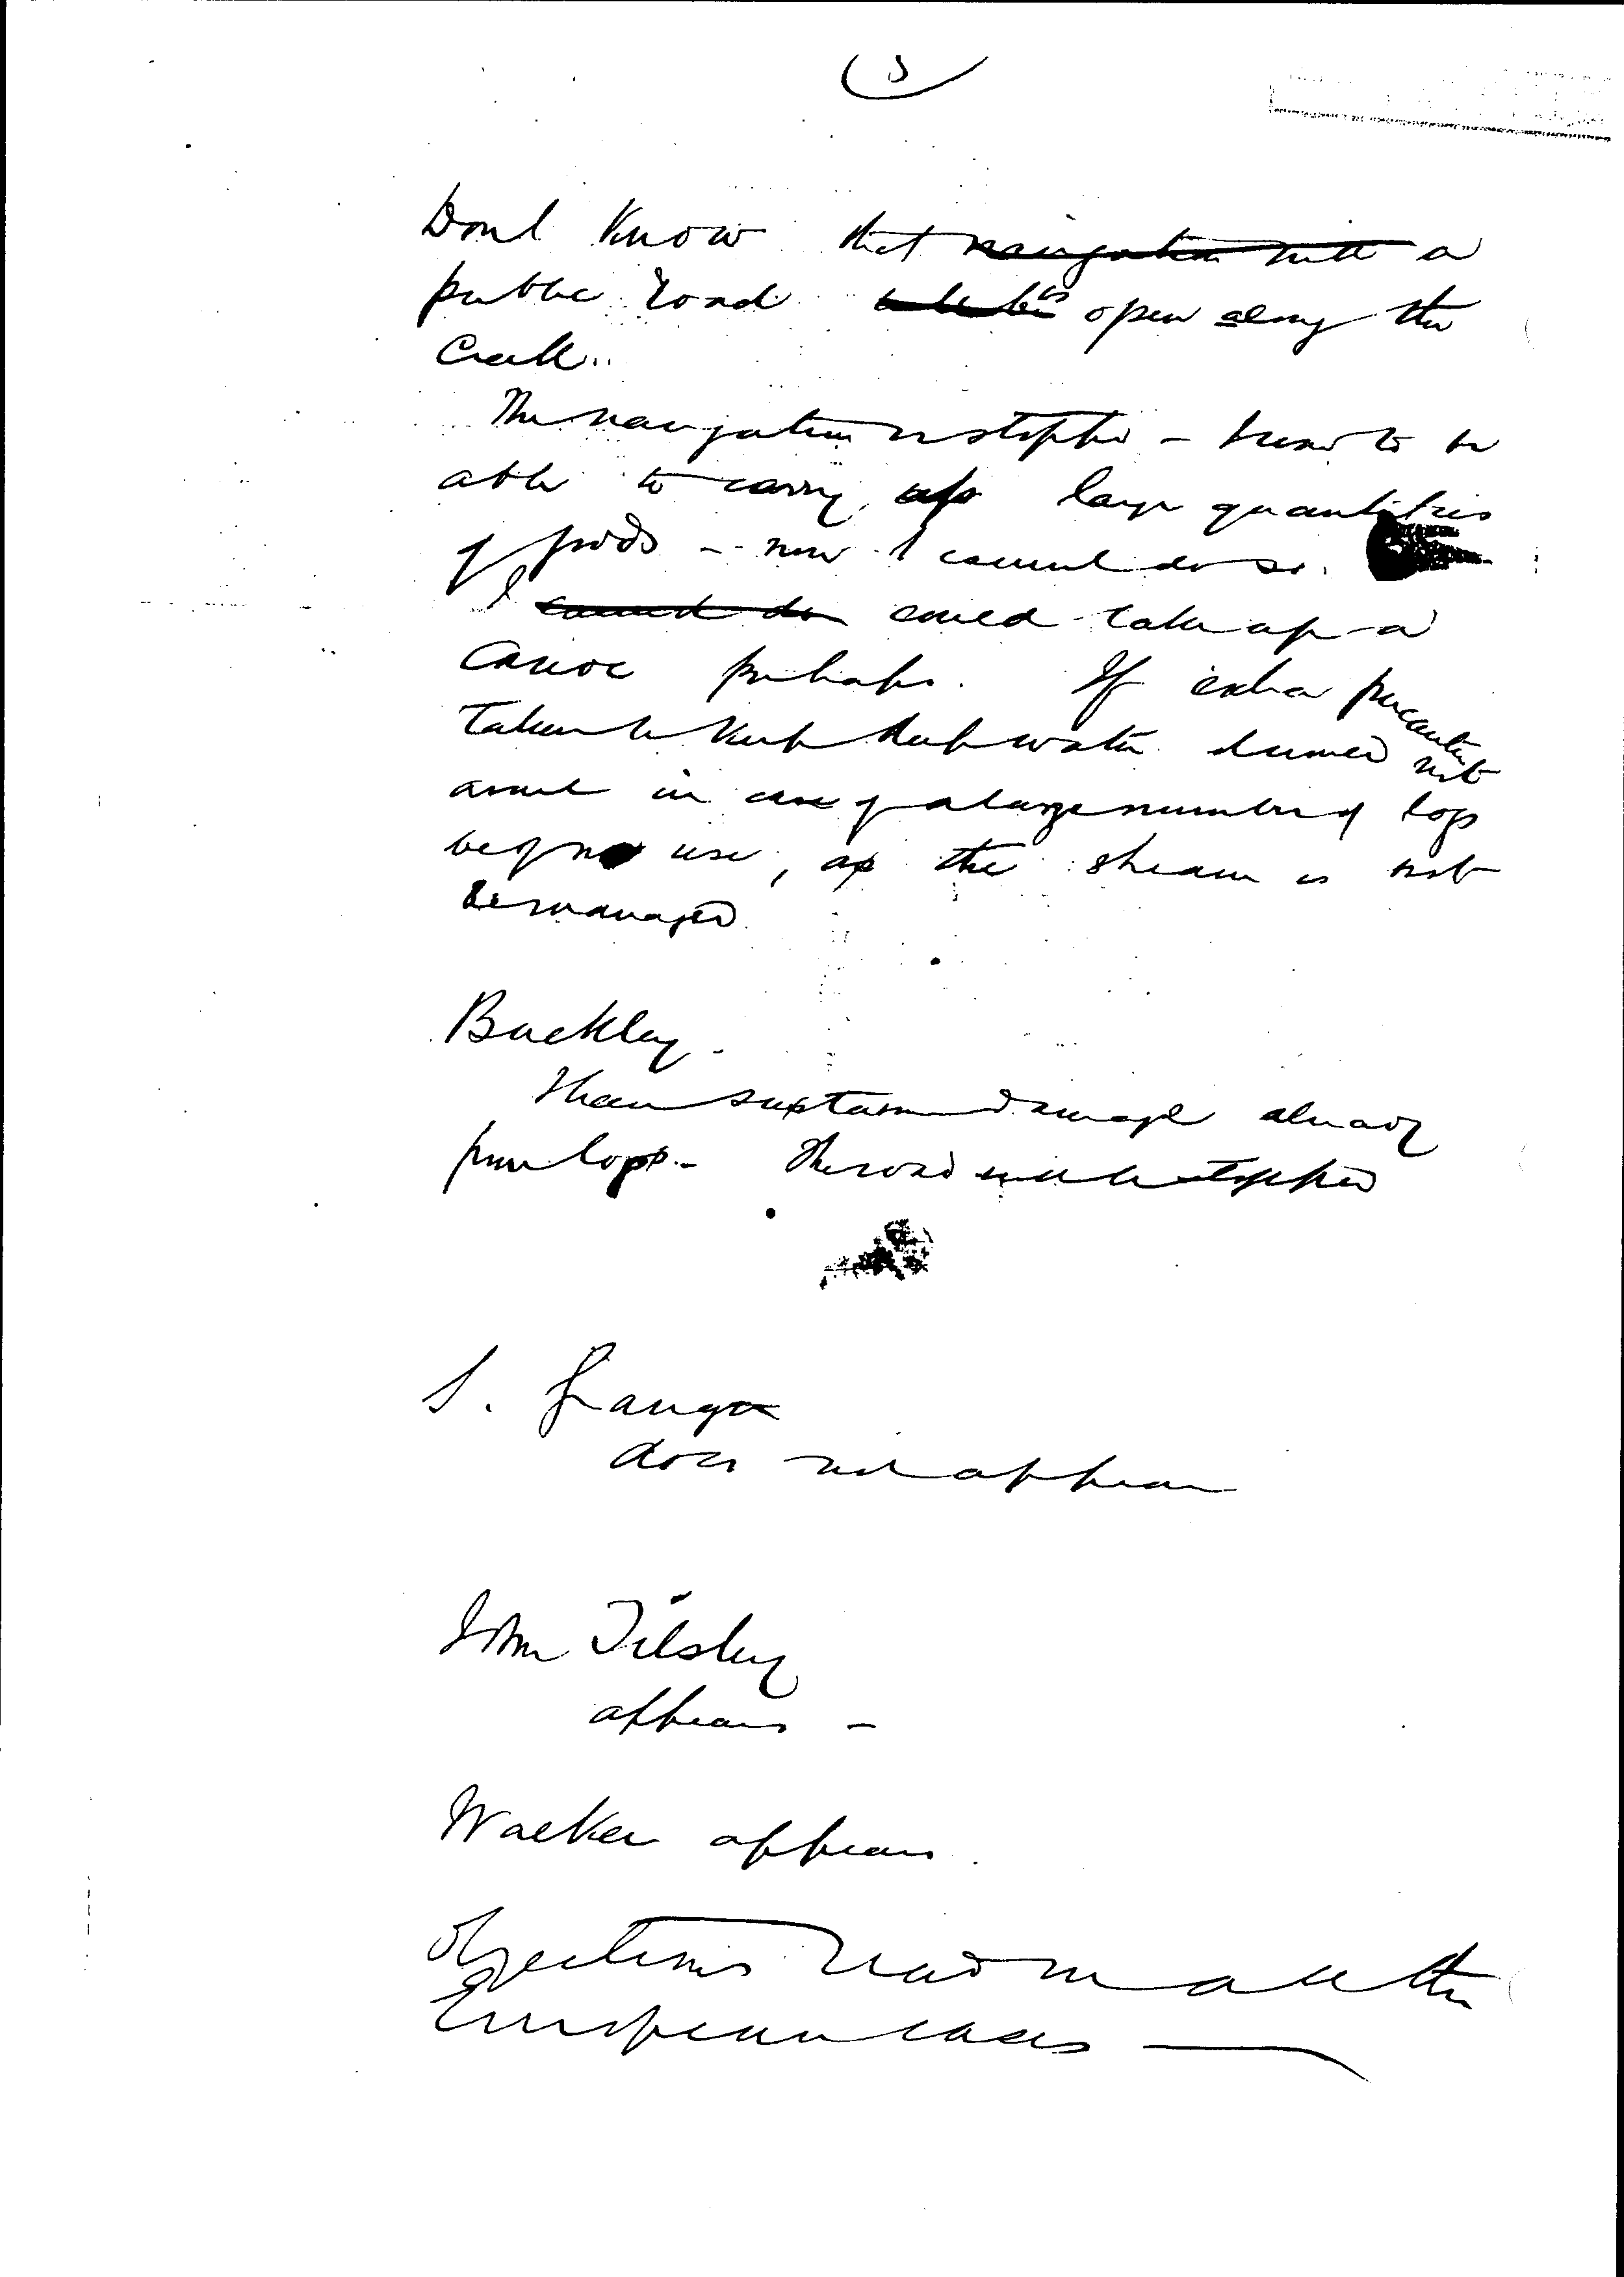 Dont Know that navigation will a
public road is open along the
Creek.
The navigation is stopped - used to be
able to carry up large quantities
of goods - now I cannot do so.
I cannot do could take up a
Canoe perhaps. If extra precaution
taken to keep deep water
in case of a large number of logs
use, as the stream is not

Buckley.
I have sustained damage already
from logs - The road will be stopped
S.
does not appear
John Tilsley
appears -
Walker appears.
Objections read in all the
European cases